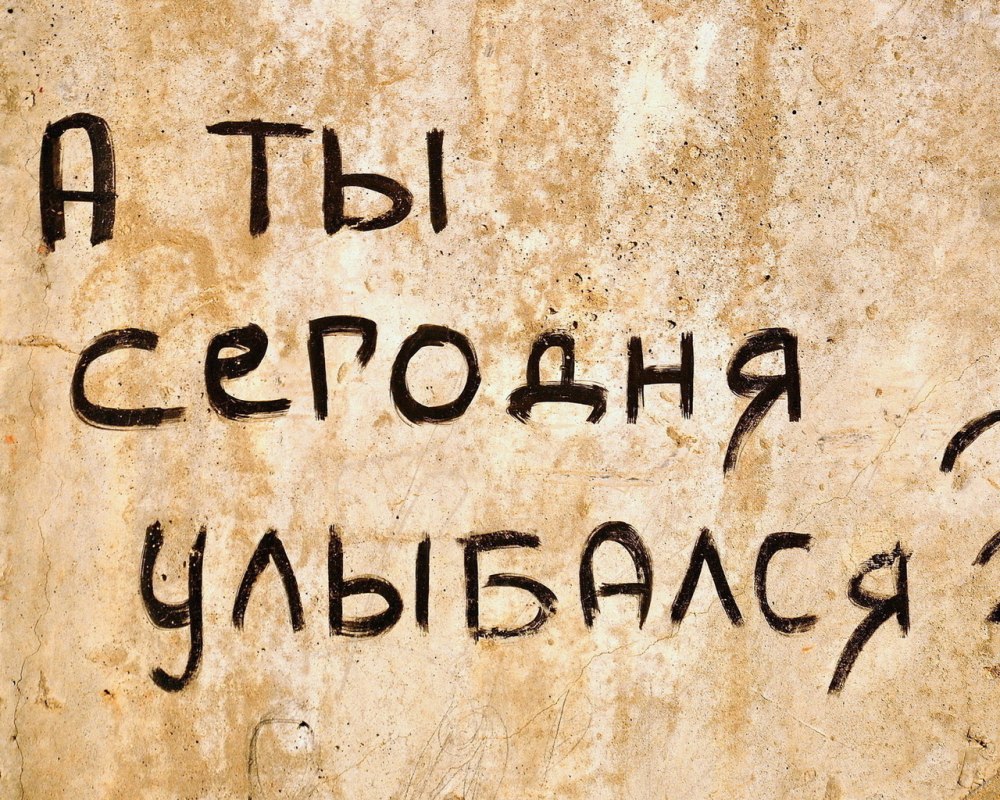 А ты
сегодня
улыбался